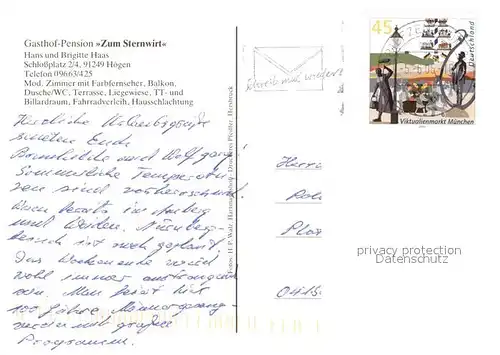 Gasthof-Pension »Zum Sternwirt«
Hans und Brigitte Haas
Schloßplatz 2/4, 91249 Högen
Telefon 09663/425
Mod. Zimmer mit Farbfernseher, Balkon,
Dusche/WC, Terrasse, Liegewiese, TT- und
Billardraum, Fahrradverleih, Hausschlachtung
Herzliche Urlaubsgrüße
senden Euch
Brunhilde und Wolfgang.
Sommerliche Temperatu-
ren sind vorherrschend.
Waren bereits in Amberg
und Weiden. Nürnberg-
besuch ist noch geplant.
Das Wochenende wird
wohl immer anstrengend
sein. Man feiert hier
100 Jahre Männergesang-
verein mit großem
Programm.
Schreib mal wieder
45
Deutschland
Viktualienmarkt München
privacy protection
Datenschutz
0415